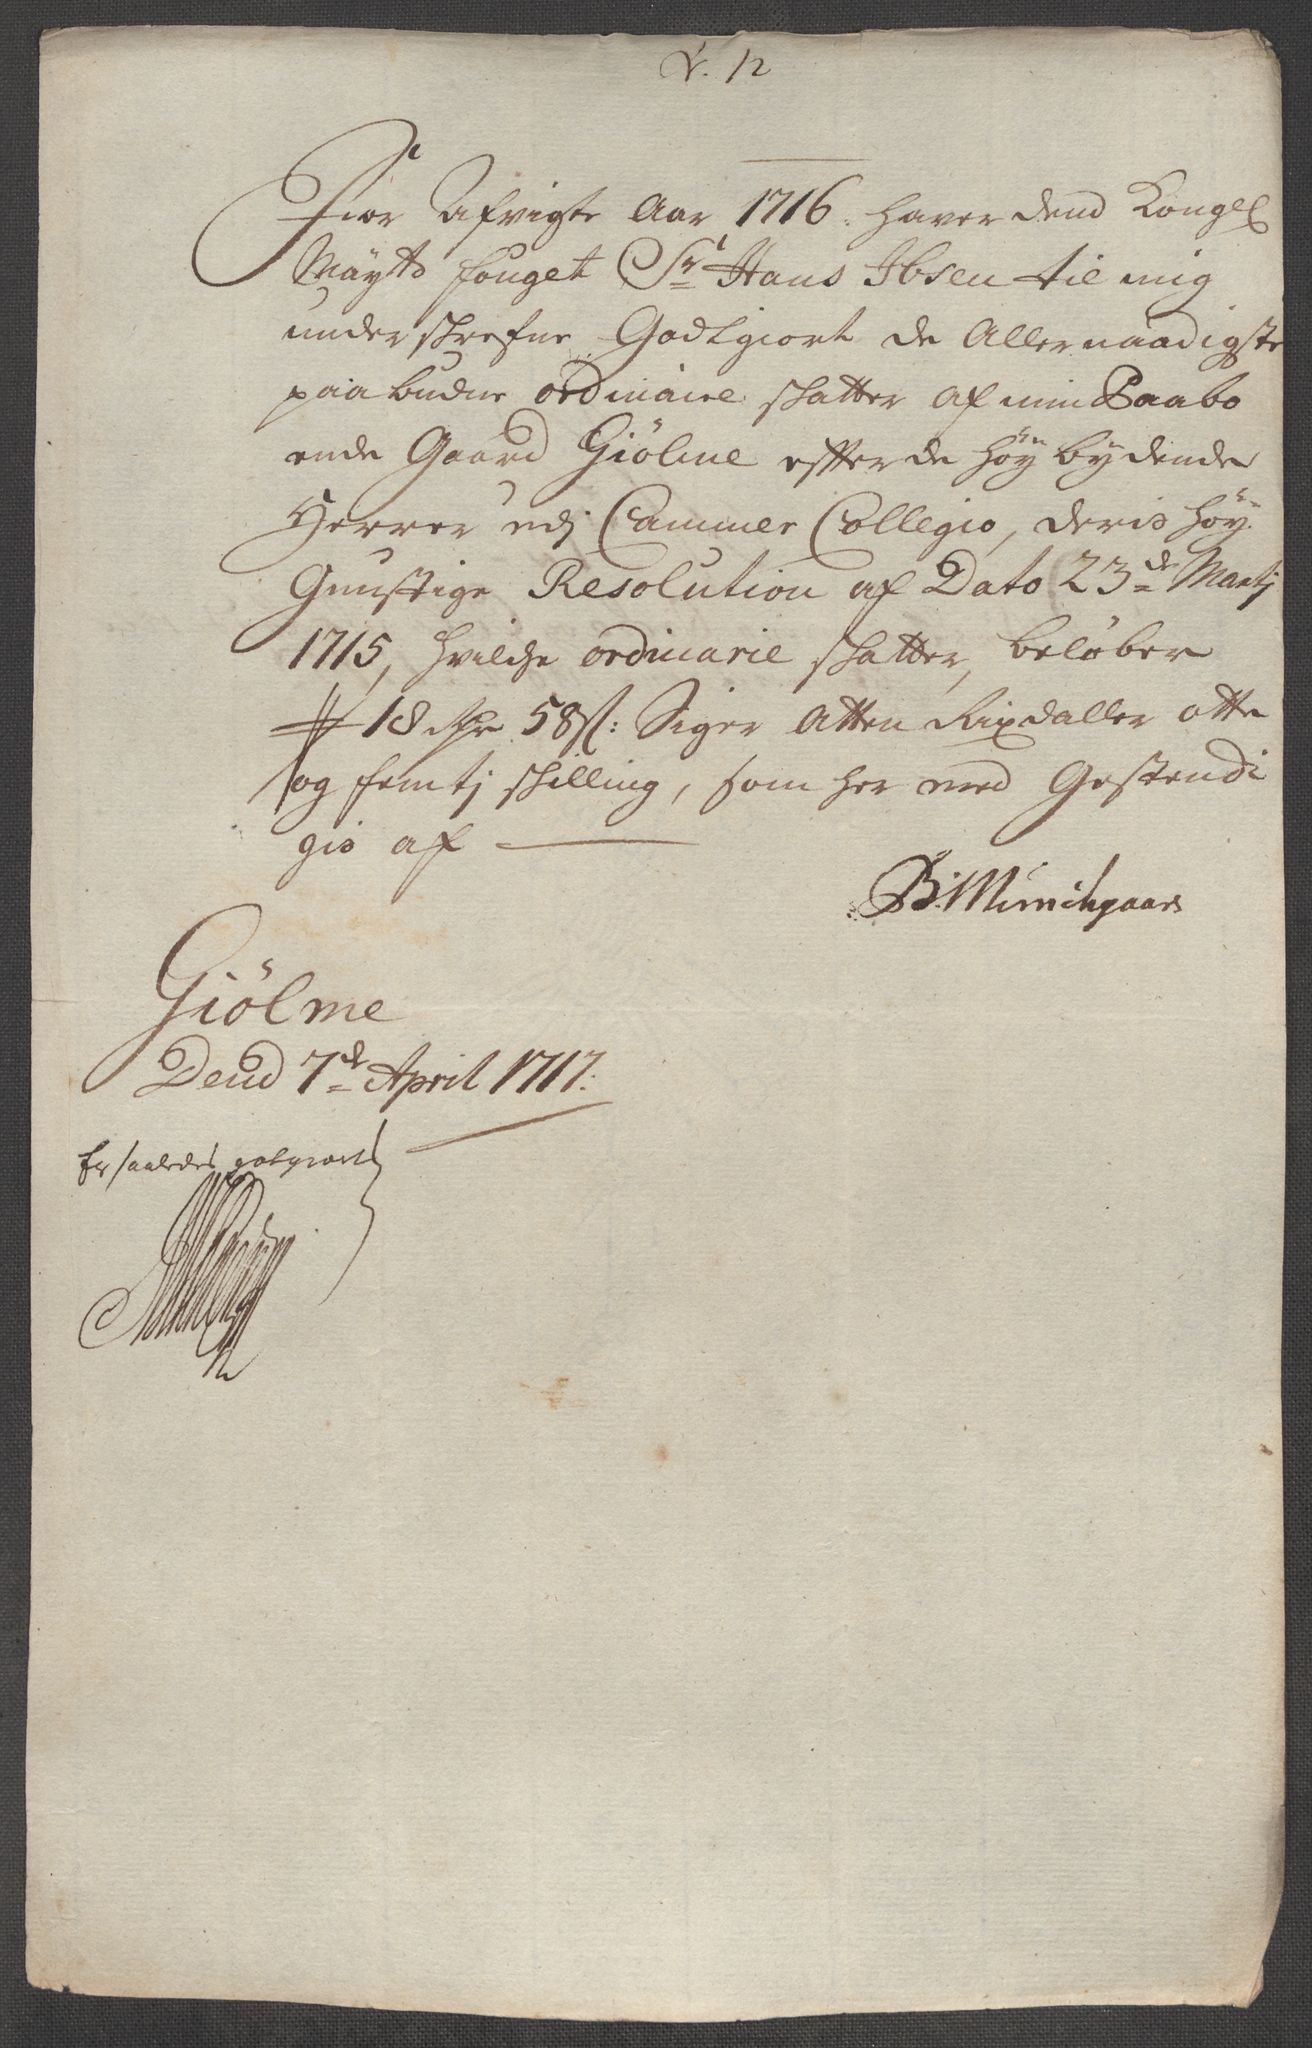 12
Fior Afvigte Aar 1716. haver dend Kongel
Mäytts fouget Sr Hans Ibsen til mig
underskrefne Godtgiort de Allernaadigste
paabudne ordinaire skatter af min Paabo
ende Gaard Giölme effter de Höybydende
Herrer udj Cammer Collegio, deris Höy
Gunstige Resolution af Dato 23de Martj
1715, hvilche ordinarie skatter, beløber
18 rdr 58 s: Siger Atten Rixdaller otte
og femtj skilling, som her med Gestendi
gis af
B. Münchgaard
Giölme
Dend 7de April 1717.
Er saaledes gotgiort